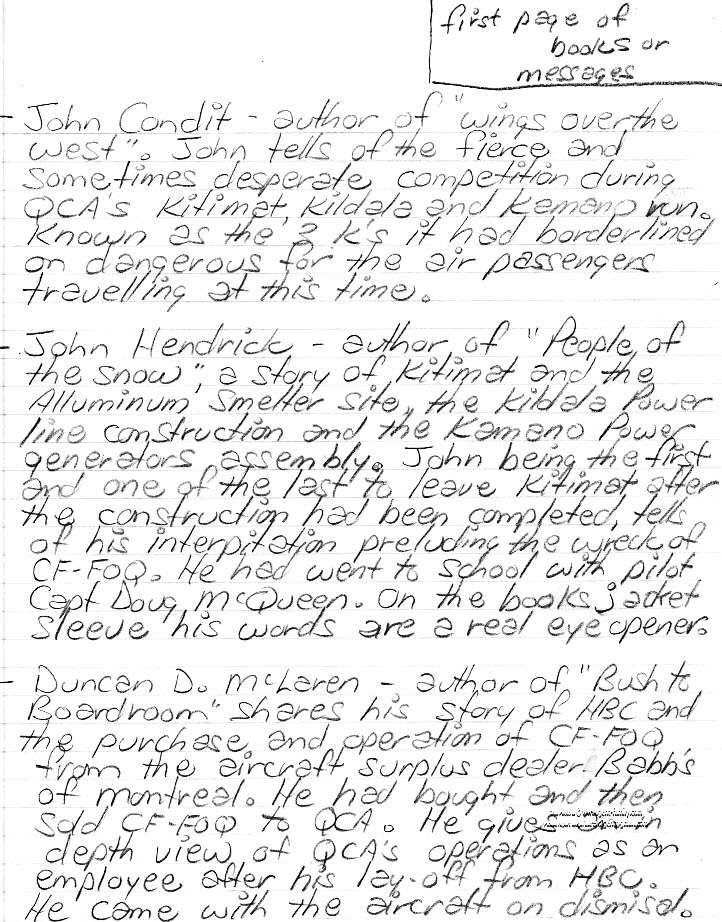 first page of
books or
messages
- John Condit - author of "wings over the
west". John tells of the fierce and
sometimes desperate competition during
QCA's Kitimat, Kildala and Kemano run.
Known as the 3 K's it had borderlined
on dangerous for the air passengers
travelling at this time.
- John Hendrick - author of "People of
the snow", a story of Kitimat and the
Alluminum Smelter Site, the Kildala Power
line construction and the Kamano Power
generators assembly. John being the first
and one of the last to leave Kitimat after
the construction had been completed, tells
of his interpitation preluding the wreck of
CF-FOQ. He had went to school with pilot
Capt Doug McQueen. On the books jacket
sleeve his words are a real eye opener.
- Duncan D. McLaren - author of "Bush to
Boardroom" shares his story of HBC and
the purchase and operation of CF-FOQ
from the aircraft surplus dealer Babb's
of montreal. He had bought and then
sold CF-FOQ to QCA. He gives in
depth view of QCA's operations as an
employee after his lay-off from HBC.
He came with the aircraft on dismisal.